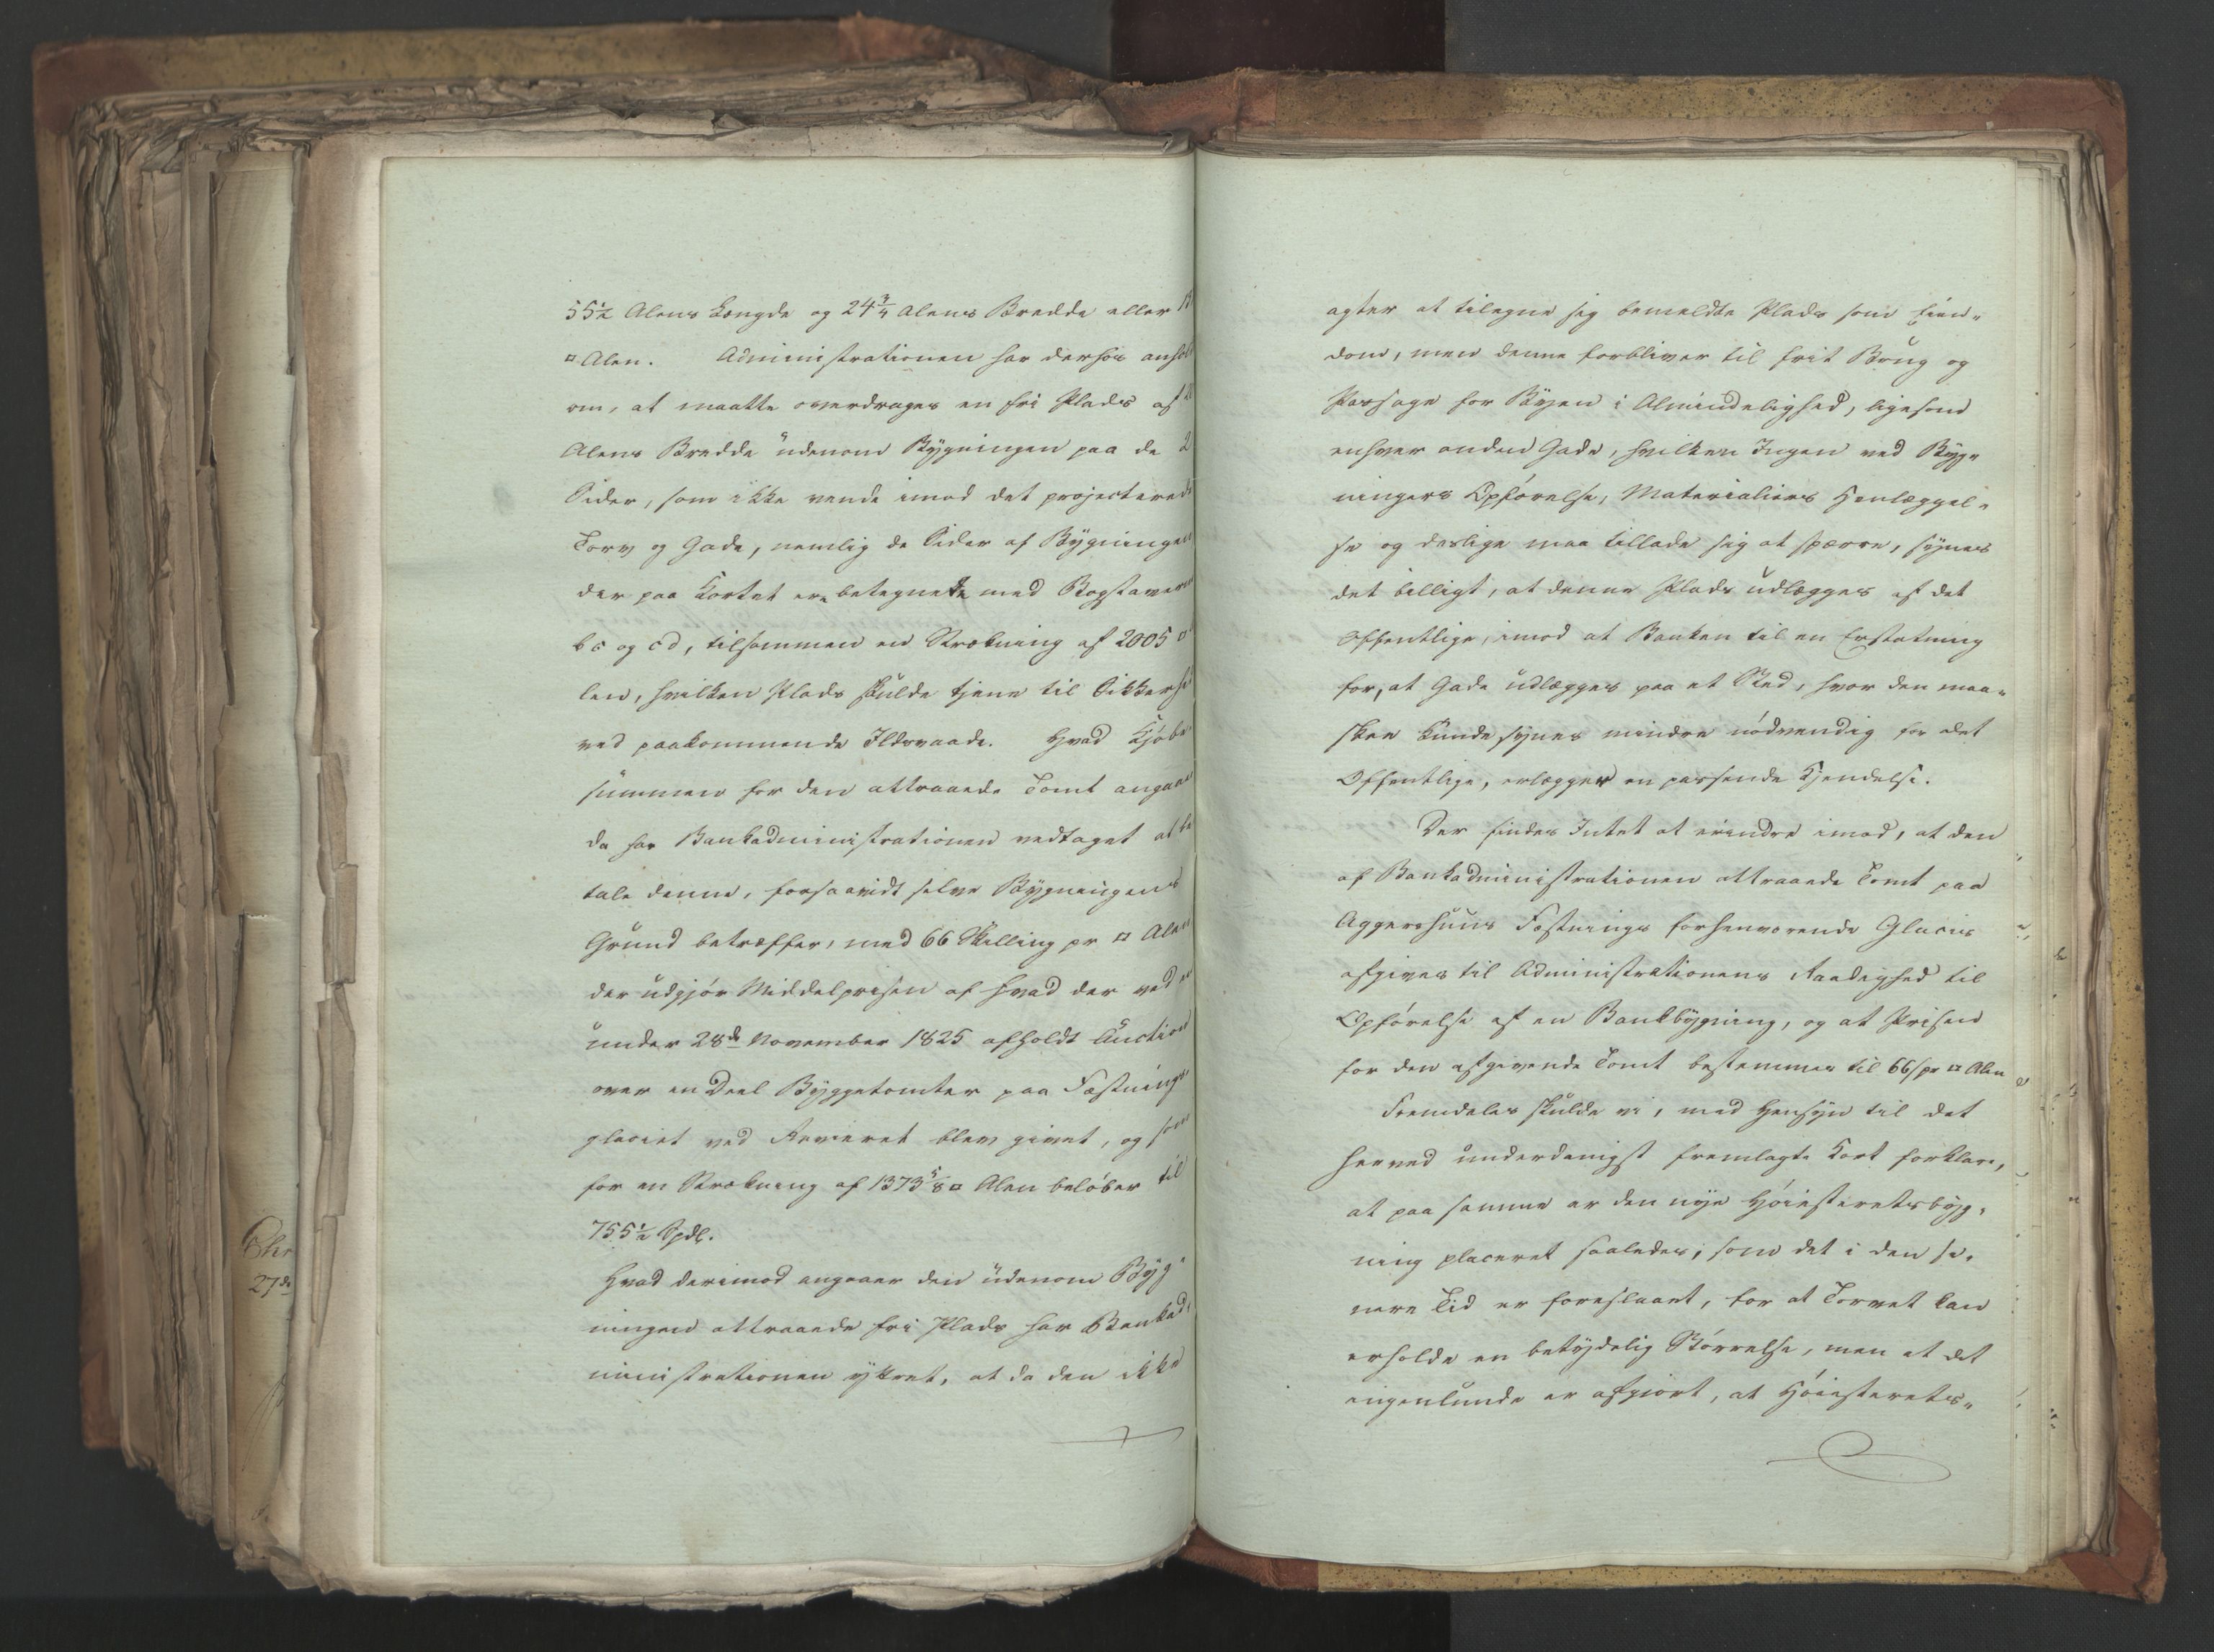 55½ Alens Længde og 24¾ Alens Bredde eller
¤ Alen. Administrationen har derhos anhol
om, at maatte overdrages en fri Plads af
Alens Bredde udenom Bygningen paa de 2
Sider, som ikke vende imod det projecterede
Torv og Gade, nemlig de Sider af Bygningen
der paa Kortet ere betegnete med Bogstaverne
bc og cd, tilsammen en Strækning af 2005 ¤
len, hvilken Plads skulde tjene til Sikkerhed
ved paakommende Ildsvaade. Hvad Kjøbe
summen for den attraaede Tomt angaaer
da har Bankadministrationen vedtaget at be
tale denne, forsaavidt selve Bygningens
Grund betræffer, med 66 Skilling pr ¤ Alen
der udgjør Middelprisen af hvad der ved en
under 28de November 1825 afholdt Auction
over en Deel Byggetomter paa Fæstnings
glaciet ved Revieret blev givet, og som
for en Strækning af 1373⅝ ¤ Alen beløber til
755½ Spdl.
Hvad derimod angaaer den udenom Byg
ningen attraaede fri Plads har Bankad
ministrationen yttret, at da den ikke
agter at tilegne sig bemeldte Plads som Eien-
dom, men denne forbliver til frit Brug og
Passage for Byen i Almindelighed, ligesom
enhver anden Gade, hvilken Ingen ved Byg-
ningers Opførelse, Materialiers Henlæggel-
se og deslige maa tillade sig at spærre, synes
det billigt, at denne Plads udlægges af det
Offentlige, imod at Banken til en Erstatning
for, at Gade udlægges paa et Sted, hvor den maa-
skee kunde synes mindre nødvendig for det
Offentlige, erlægger en passende Kjendelse.
Der findes Intet at erindre imod, at den
af Bankadministrationen attraaede Tomt paa
Aggershuus Fæstnings forhenværende Glacis
afgives til Administrationens Raadighed til
Opførelse af en Bankbygning, og at Prisen
for den afgivende Tomt bestemmes til 66 s pr ¤ Alen
Fremdeles skulde vi, med Hensyn til det
herved underdanigst fremlagte Kort forklare,
at paa samme er den nye Høiesteretsbyg-
ning placeret saaledes, som det i den se-
nere Tid er foreslaaet, for at Torvet kan
erholde en betydelig Størrelse, men at det
ingenlunde er afgiort, at Høiesterets-
Chr
27de